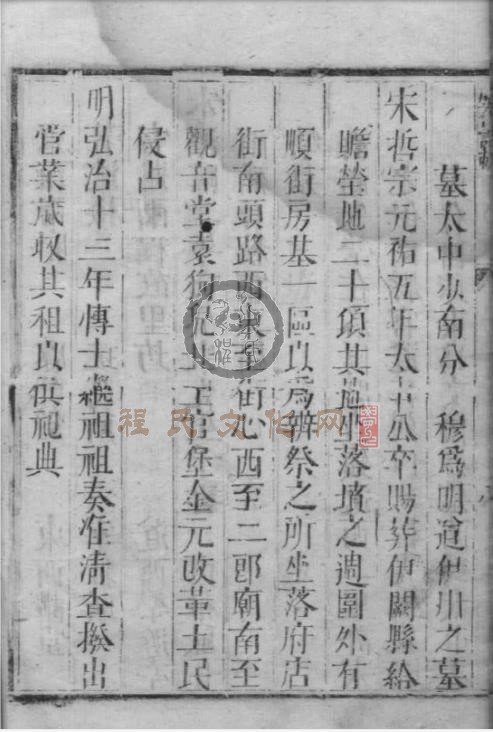 墓太中少南分 穆爲明道伊川之墓
宋哲宗元祐五年太中公卒賜葬伊闕縣給
贍塋地二十頃其地坐落墳之週圍外有
順街房基一區以爲辦祭之所坐落府店
街南頭路西東至街心西至二郎廟南至
觀音堂袁狗兒北至官堡金元改革土民
侵占
明弘治十三年博士繼祖祖奏准清查撥出
管業歲収其租以供祀典
程氏文化网